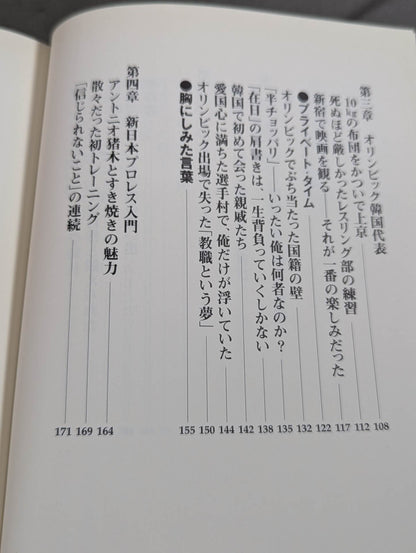 第三章　オリンピック韓国代表
10kgの布団をかついで上京 108
死ぬほど厳しかったレスリング部の練習 112
新宿で映画を観る――それが一番の楽しみだった 117
●プライベート・タイム 122
オリンピックでぶち当たった国籍の壁 132
「半チョッパリ」――いったい俺は何者なのか？ 135
「在日」の肩書きは、一生背負っていくしかない 138
韓国で初めて会った親戚たち 142
愛国心に満ちた選手村で、俺だけが浮いていた 144
オリンピック出場で失った「教職という夢」 150
●胸にしみた言葉 155
第四章　新日本プロレス入門
アントニオ猪木とすき焼きの魅力 164
散々だった初トレーニング 169
「信じられないこと」の連続 171